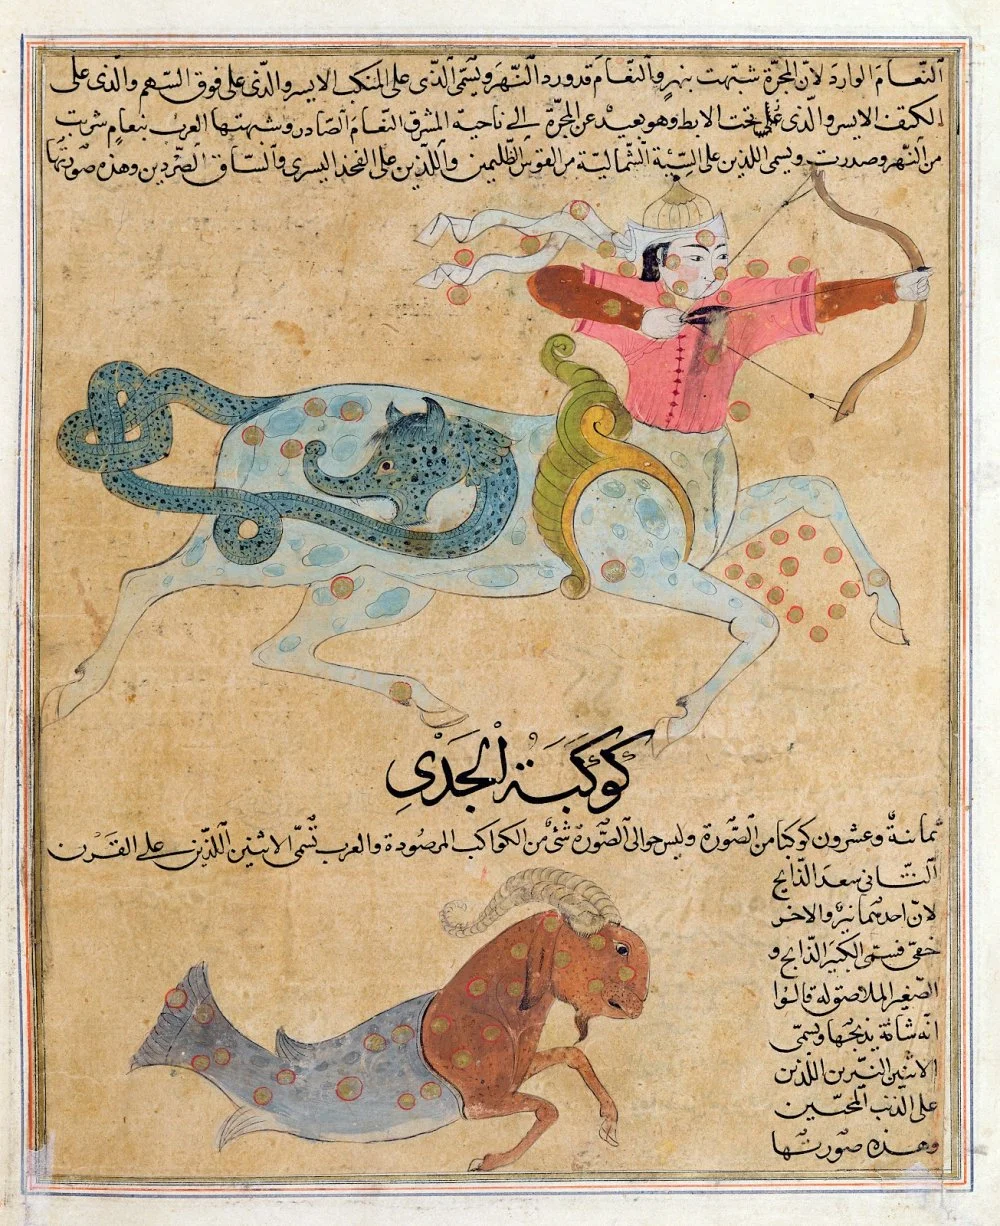 النعام الوارد لان المجرّة شبّهت بنهر والنعام قدورد النهر ويسمّى الّذى على المنكب الايسر والّذى على فوق السّهم والّذى على
الكتف الايسر والّذى على تحت الابط وهو بعيد عن المجرّة الى ناحية المشرق النعام الصّادر وشبهتها العرب بنعام شربت
من النهر وصدرت ويسمى اللذين على السّيّة الشّماليّة من القوس الظليمين واللّذين على الفخذ اليسرى والسّاق الصّردين وهذه صورتها
كَوْكَبَةُ الجَدْىِ
ثمانية وعشرون كوكبا من الصّورة وليس حوالى الصّورة شئ من الكواكب المرصودة والعرب تسمّى الاثنين اللّذين على القرن
الثّانى سعد الذّابح
لانّ احدهما نيّر والاخر
خفىّ فسمّى الكبير الذّابح و
الصّغير الملاصق له قالوا
انّه شاته يذبحها ويسمّى
الاثنين النيّرين اللّذين
على الذّنب المحبّين
وهذه صورتها